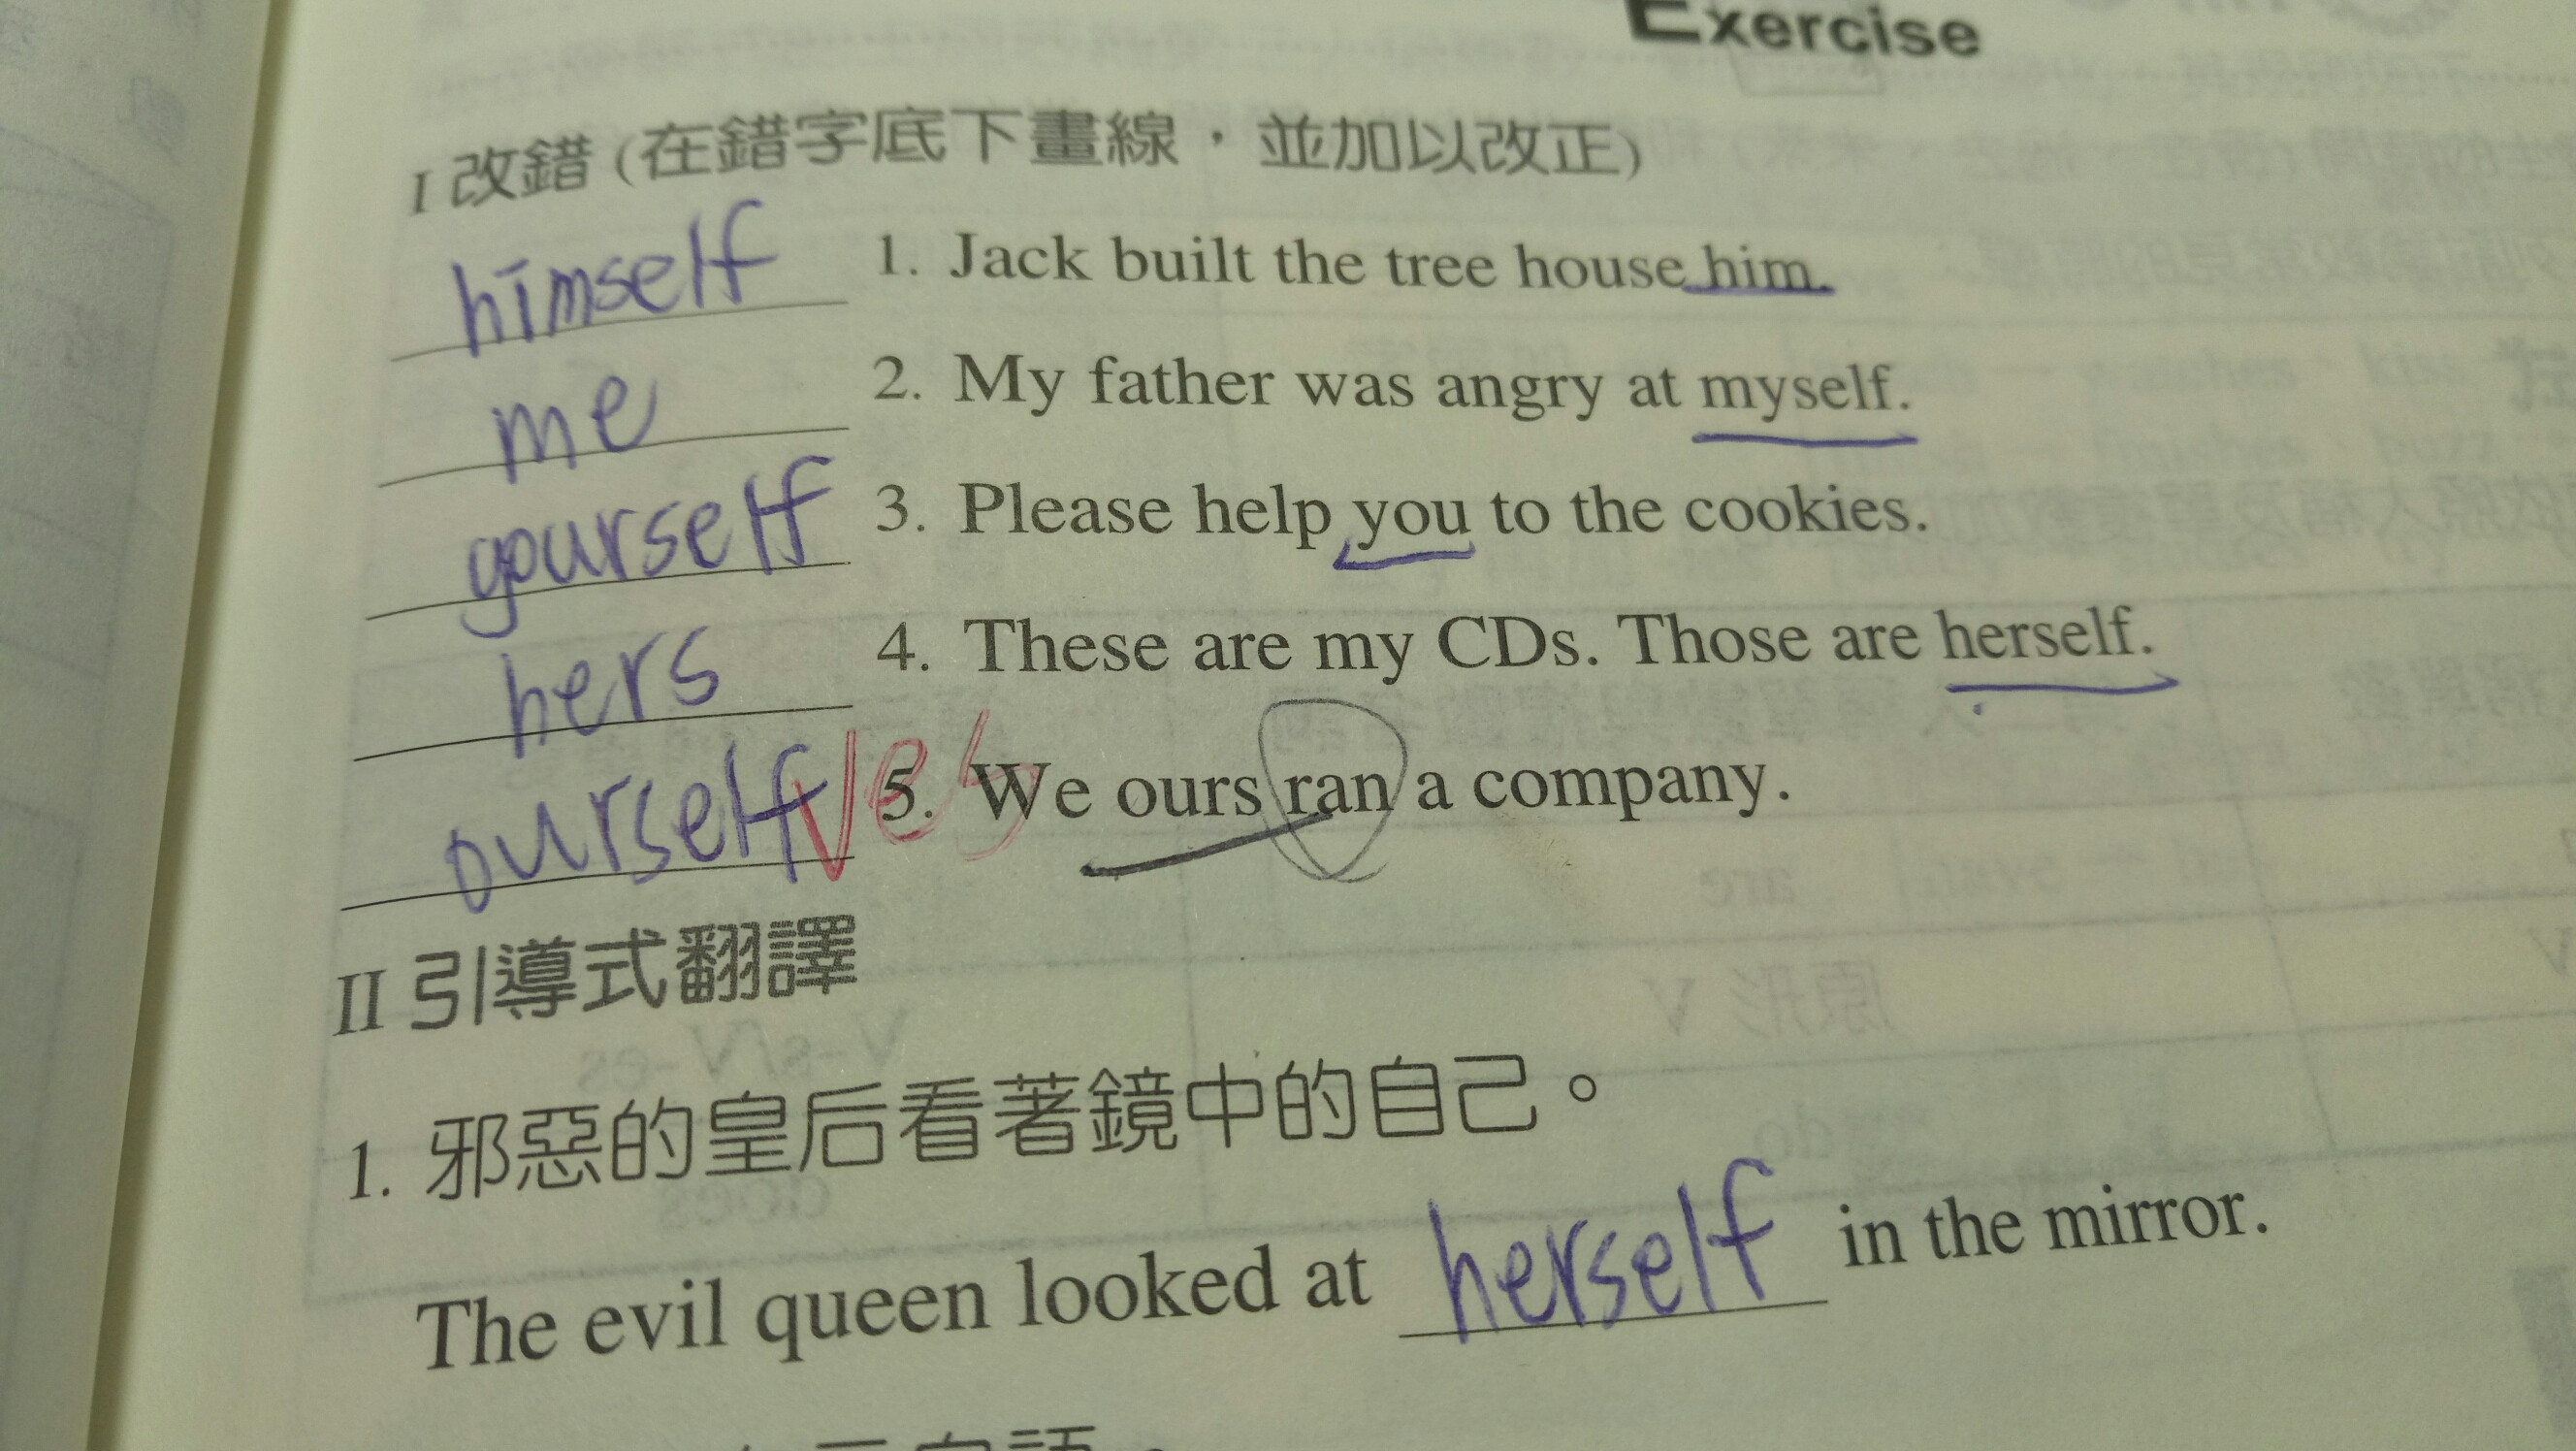 Exercise
I 改錯 (在錯字底下畫線，並加以改正)
himself 1. Jack built the tree house him.
me 2. My father was angry at myself.
yourself 3. Please help you to the cookies.
hers 4. These are my CDs. Those are herself.
ourself ves 5. We ours ran a company.
II 引導式翻譯
1. 邪惡的皇后看著鏡中的自己。
The evil queen looked at herself in the mirror.